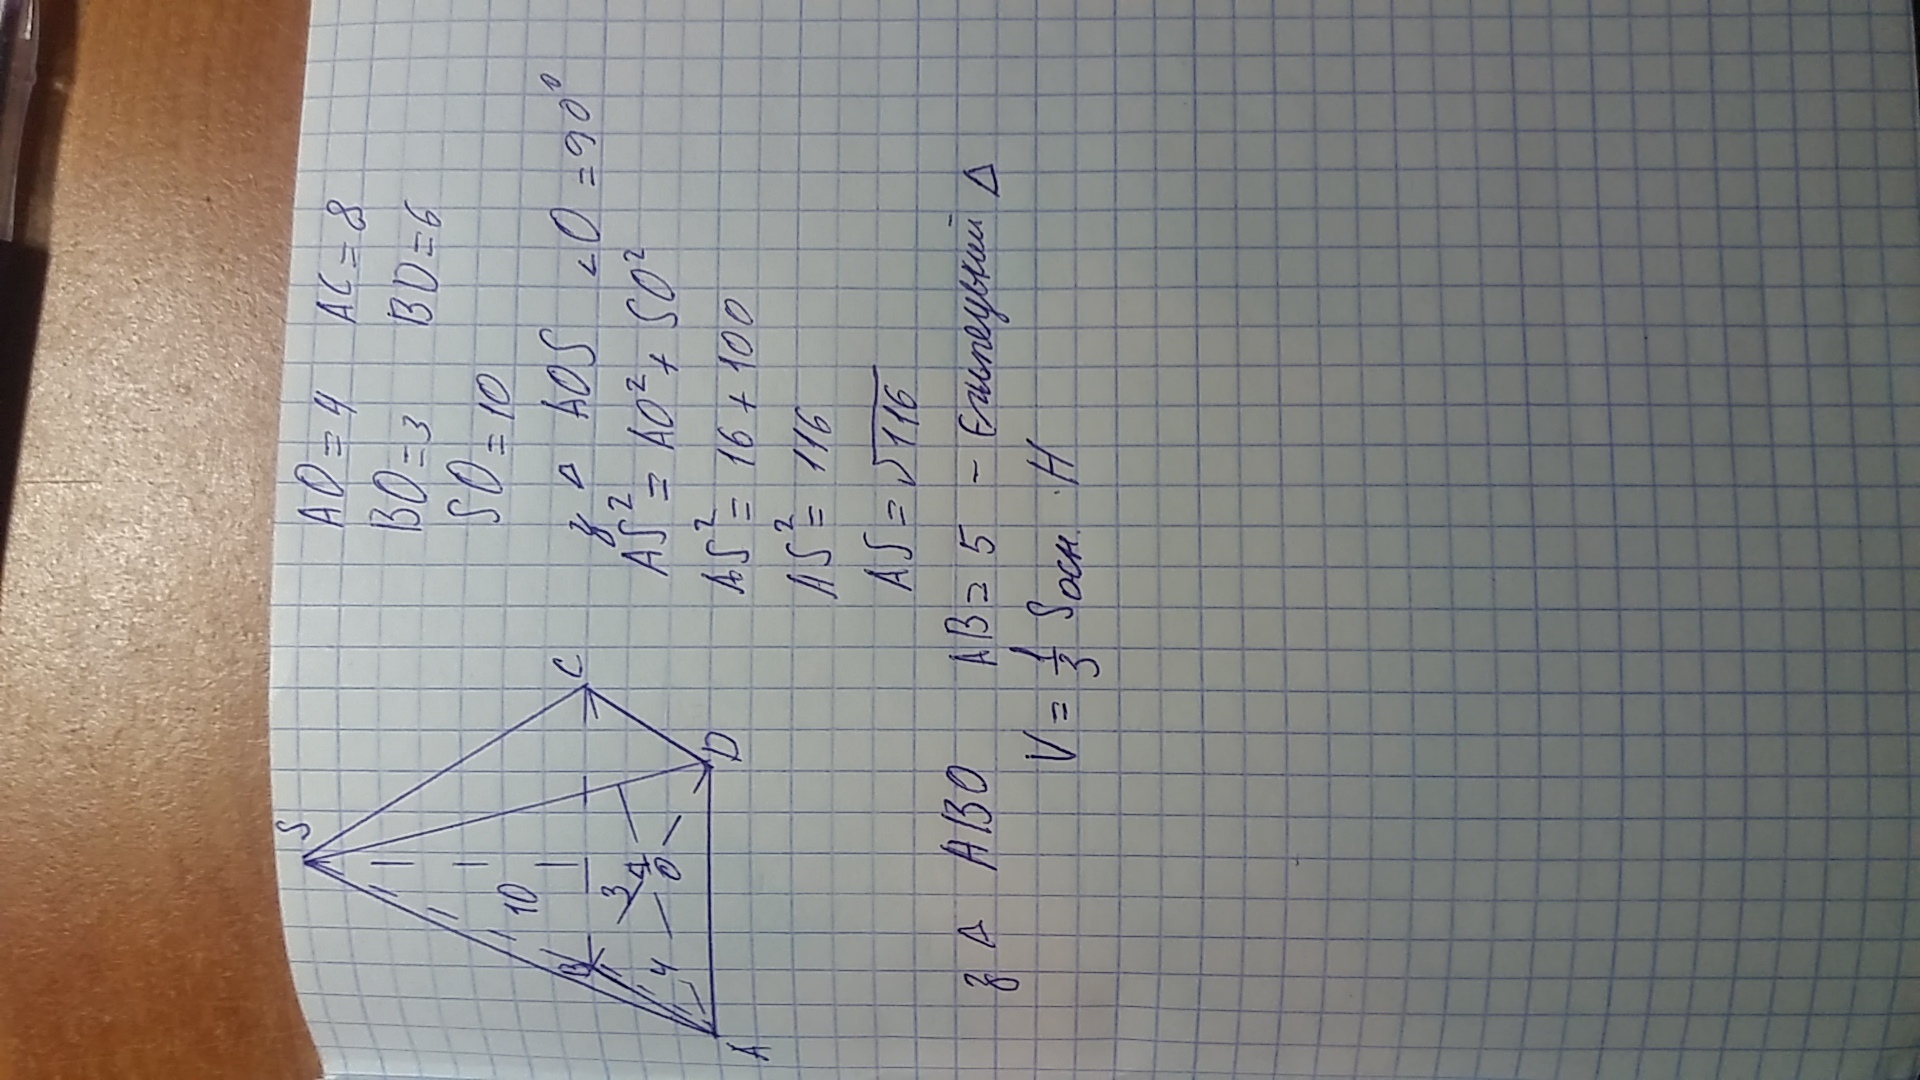 S
10
B
3
4
O
A
D
C
AO = 4 AC = 8
BO = 3 BD = 6
SO = 10
з △ AOS ∠O = 90°
AS² = AO² + SO²
AS² = 16 + 100
AS² = 116
AS = √116
з △ ABO AB = 5 – Египеувкий △
V = 1/3 Sосн. · H